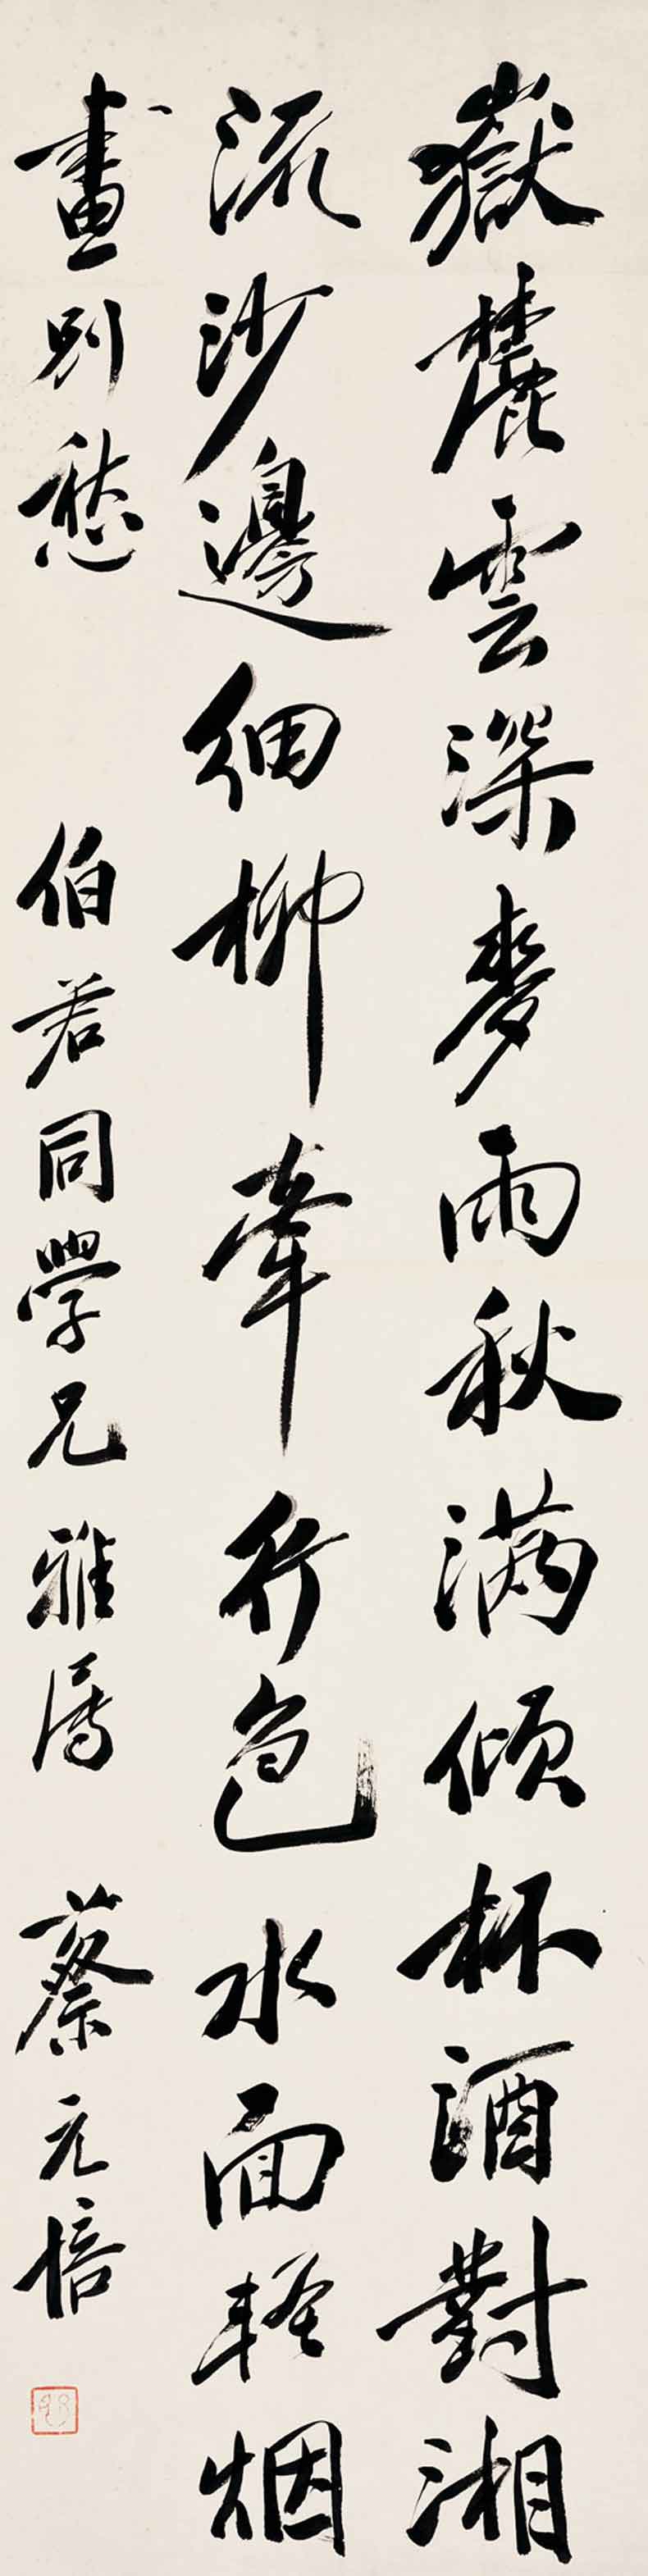 嶽麓雲深麥雨秋滿傾杯酒對湘
流沙邊細柳牽行色水面輕烟
畫別愁 伯君同學兄雅屬 蔡元培